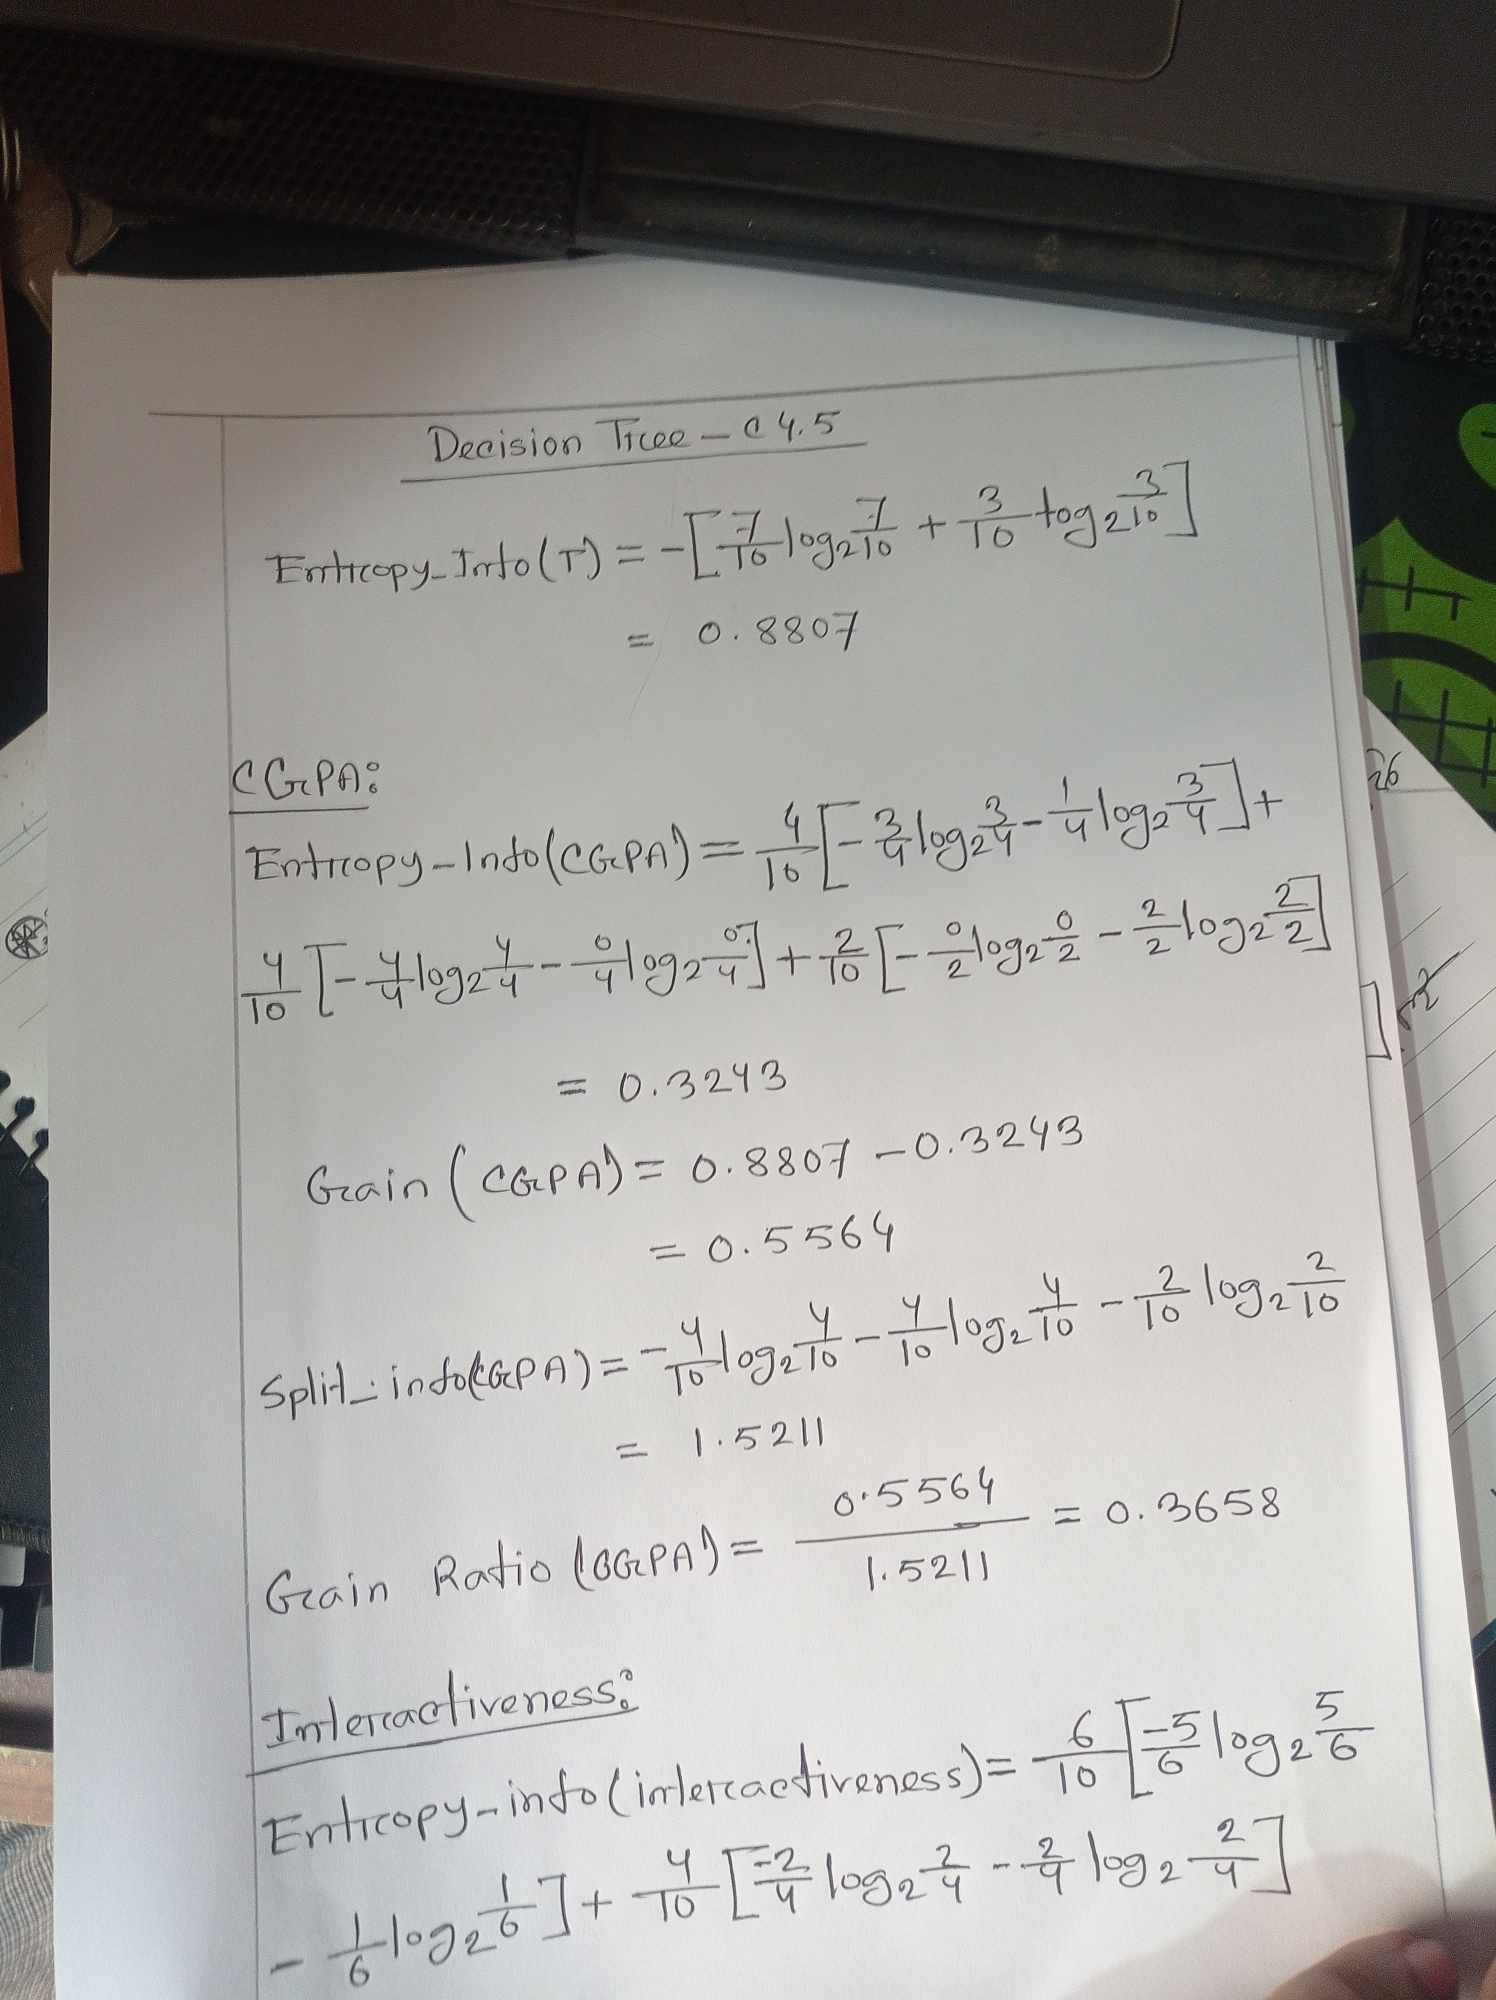 Decision Tree - C4.5
Entropy_Info(T) = -[7/10 log₂ 7/10 + 3/10 log₂ 3/10]
= 0.8807
CGPA:
Entropy-Info(CGPA) = 4/10 [- 3/4 log₂ 3/4 - 1/4 log₂ 3/4] +
4/10 [- 4/4 log₂ 4/4 - 0/4 log₂ 0/4] + 2/10 [- 0/2 log₂ 0/2 - 2/2 log₂ 2/2]
= 0.3243
Gain (CGPA) = 0.8807 - 0.3243
= 0.5564
Split_info(CGPA) = - 4/10 log₂ 4/10 - 4/10 log₂ 4/10 - 2/10 log₂ 2/10
= 1.5211
Gain Ratio (CGPA) = 0.5564 / 1.5211 = 0.3658
Interactiveness:
Entropy-info(interactiveness) = 6/10 [-5/6 log₂ 5/6
- 1/6 log₂ 1/6] + 4/10 [-2/4 log₂ 2/4 - 2/4 log₂ 2/4]